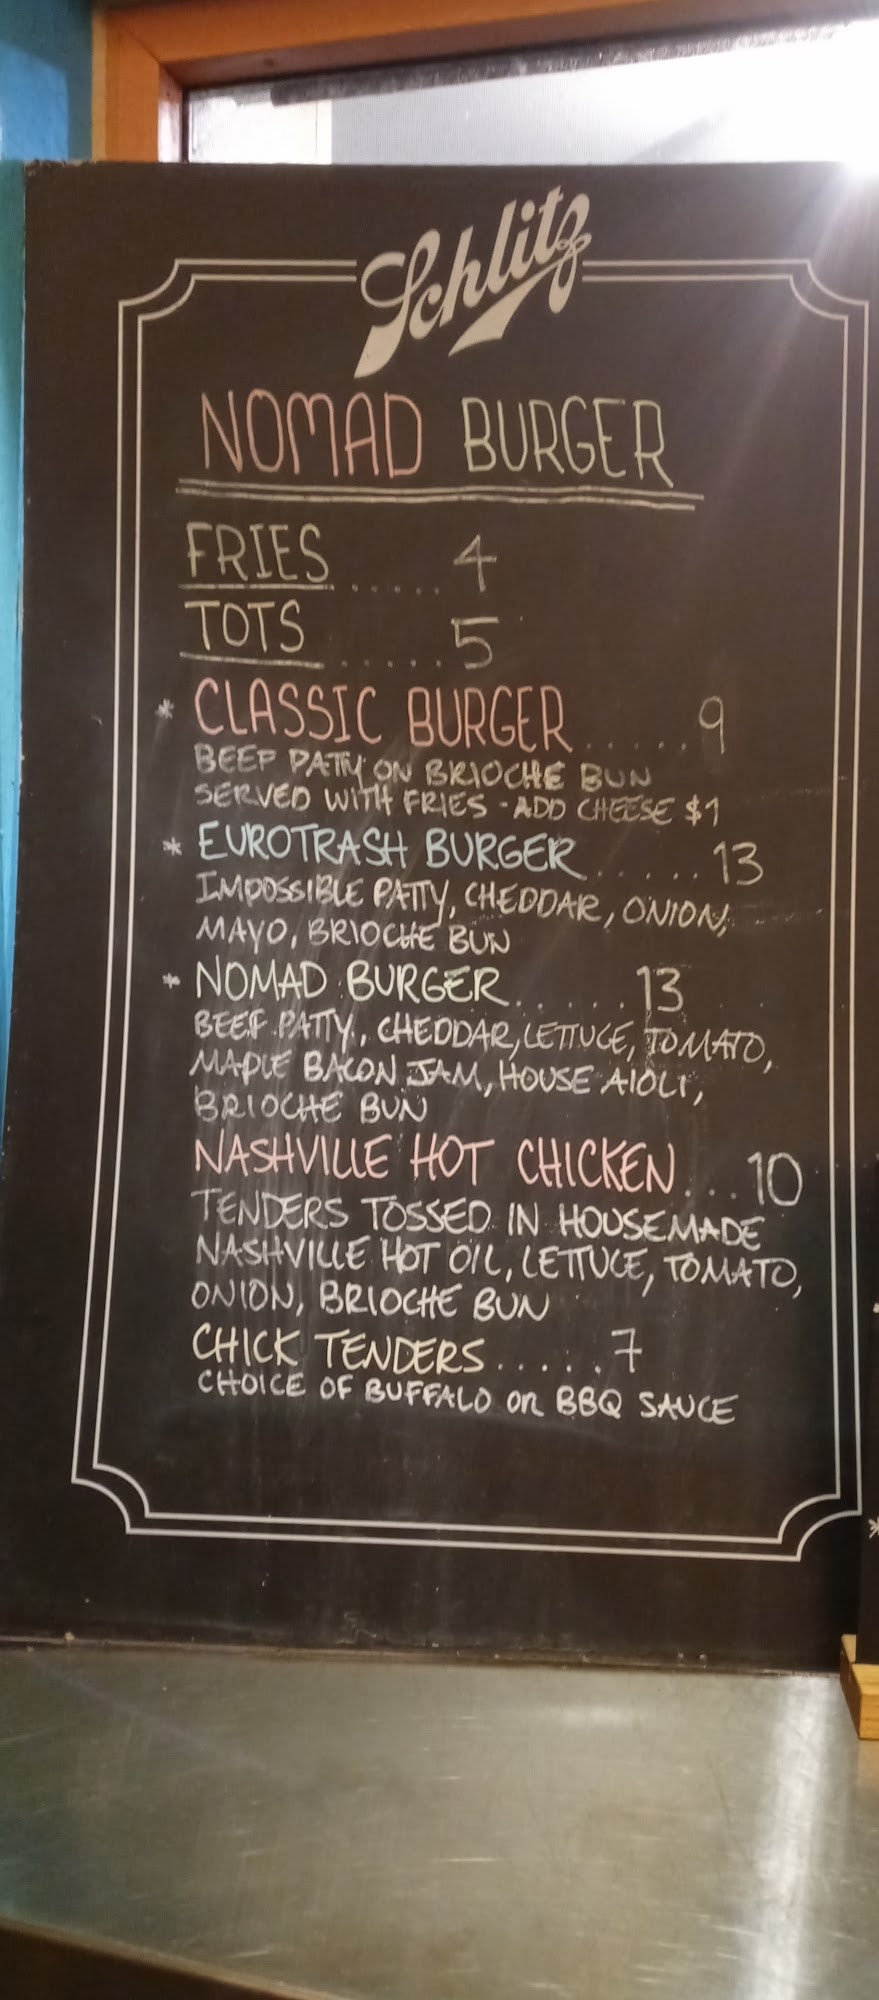 Schlitz
NOMAD BURGER
FRIES ..... 4
TOTS ..... 5
* CLASSIC BURGER ...... 9
BEEF PATTY ON BRIOCHE BUN
SERVED WITH FRIES - ADD CHEESE $1
* EUROTRASH BURGER ...... 13
IMPOSSIBLE PATTY, CHEDDAR, ONION,
MAYO, BRIOCHE BUN
* NOMAD BURGER ...... 13
BEEF PATTY, CHEDDAR, LETTUCE, TOMATO,
MAPLE BACON JAM, HOUSE AIOLI,
BRIOCHE BUN
NASHVILLE HOT CHICKEN ... 10
TENDERS TOSSED IN HOUSEMADE
NASHVILLE HOT OIL, LETTUCE, TOMATO,
ONION, BRIOCHE BUN
CHICK TENDERS ..... 7
CHOICE OF BUFFALO OR BBQ SAUCE